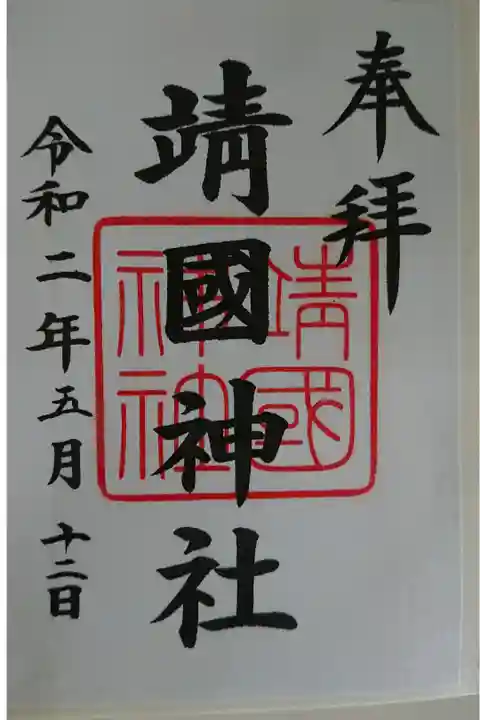 奉拝
靖國神社
靖國
神社
令和二年五月十二日